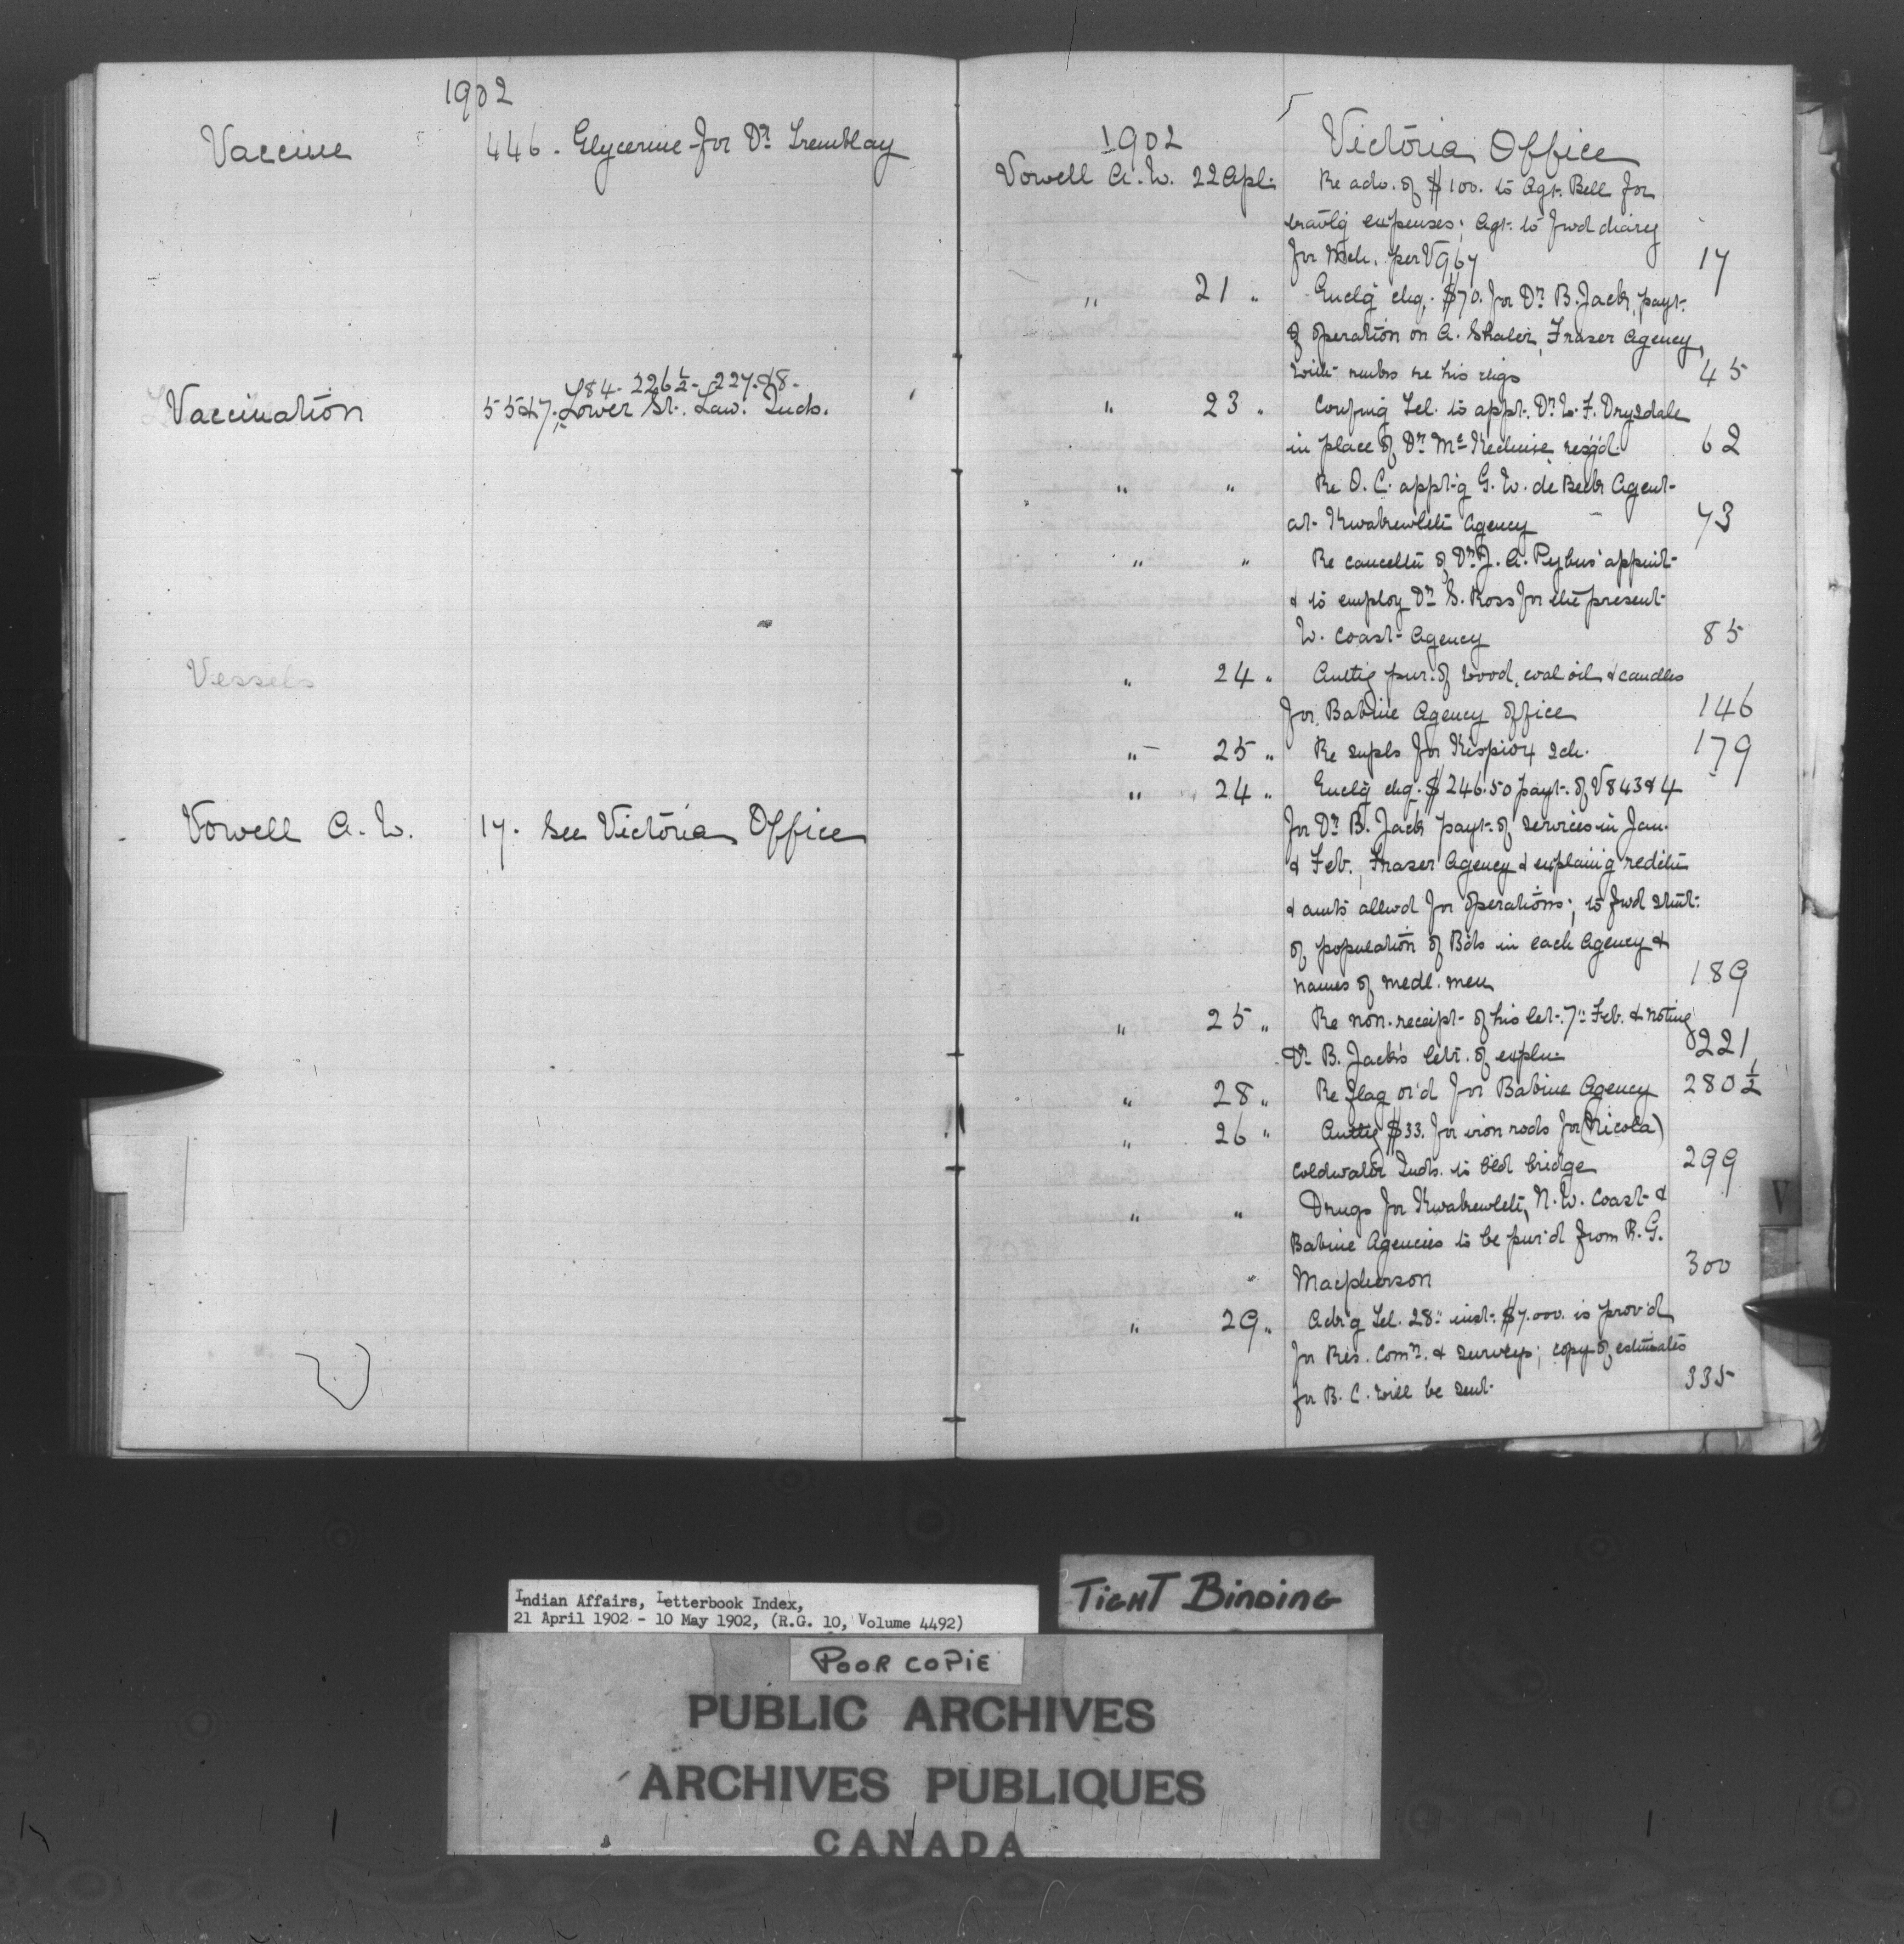 1902
Vaccine 446. Glycerine for Dr. Tremblay
184. 226½. 227. 
Vaccination Lower St. Law. Inds.
Vessels
Vowell A. W. 17. See Victoria Office
1902 Victoria Office
Vowell A. W. 22 Apl. Re adv. of $100. to Agt. Bell for
travlg expenses; Agt. to fwd diary
for Mch. per V967 17
" 21 " Enclg chq. $70. for Dr. B. Jack, payt.
of operation on A. Shaler, Fraser Agency,
with remks re his chgs 45
" 23 " Confmg Tel. to appt. Dr. W. F. Drysdale
in place of Dr. McKechnie resg'd. 62
" " Re O. C. appt'g G. W. de Beck Agent
at Kwawkewlth Agency 73
" " Re cancelltn of Dr. J. A. Pybus' appmt
& to employ Dr. S. Ross for the present
W. Coast Agency 85
" 24 " Authg pur. of wood, coal oil & candles
for Babine Agency Office 146
" 25 " Re supls for Kispiox sch. 179
" 24 " Enclg chq. $246.50 payt. of V843 & 4
for Dr. B. Jack payt. of services in Jan.
& Feb., Fraser Agency & explaing redctn
& amts allwd for operations; to fwd stmt.
of population of Bds in each Agency &
names of medl. men 189
" 25 " Re non-receipt of his let. 7" Feb. & noting
Dr. B. Jack's letr. of expln. 221
" 28 " Re flag or'd for Babine Agency 280½
" 26 " Authg $33. for iron rods for (Nicola)
Coldwater Inds. to bld bridge 299
" " Drugs for Kwawkewlth, N. W. Coast &
Babine Agencies to be pur'd from R. G.
Macpherson 300
" 29 " Ack'g Tel. 28" inst. $7.000. is prov'd
for Res. Comn. & surveys; copy of estimates
for B. C. will be sent. 335
V
Indian Affairs, Letterbook Index,
21 April 1902 - 10 May 1902, (R.G. 10, Volume 4492)
TIGHT BINDING
POOR COPIE
PUBLIC ARCHIVES
ARCHIVES PUBLIQUES
CANADA